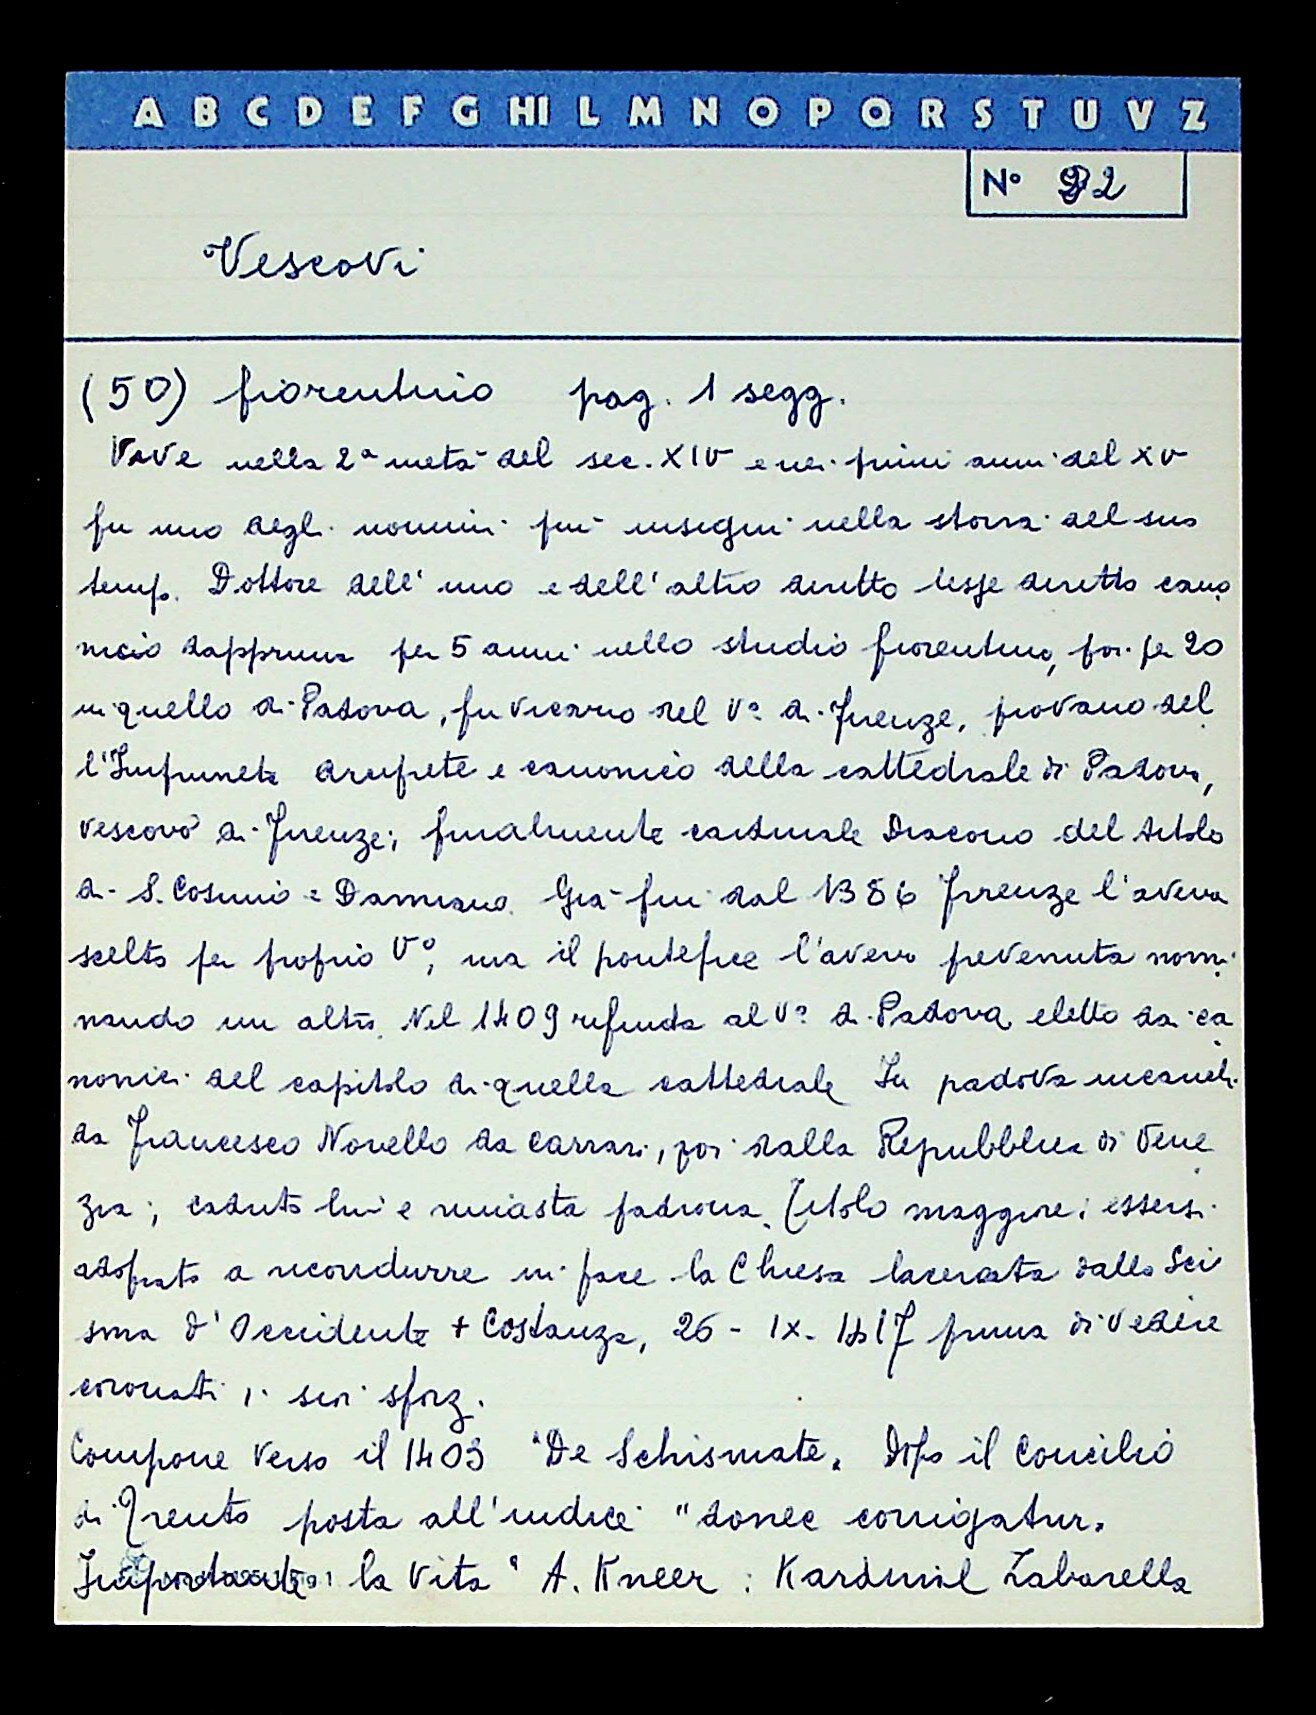 A B C D E F G HI L M N O P Q R S T U V Z
N° 2
Vescovi
(50) fiorentino pag. 1 segg.
Vive nella 2ª metà del sec. XIV e nei primi anni del XV
fu uno degli uomini più insigni nella storia del suo
temp. Dottore dell'uno e dell'altro diritto lesse diritto cano
nicio dapprima per 5 anni nello studio fiorentino, poi per 20
in quello di Padova, fu vicario del V° di Firenze, piovano del
l'Impruneta e canonico della cattedrale di Padova,
vescovo di Firenze; finalmente cardinale Diacono del titolo
di S. Cosimo e Damiano. Già fin dal 1386 Firenze l'aveva
scelto per proprio V°, ma il pontefice l'aveva prevenuta nomi
nando un altro. Nel 1409 rifiuta al V° di Padova, eletto dai ca
nonici del capitolo di quella cattedrale In padova
da Francesco Novello da Carrara, poi dalla Repubblica di Vene
zia; caduto lui e rimasta padrona. Titolo maggiore: essersi
adoprato a ricondurre in pace la Chiesa lacerata dallo Sci
sma d'Occidente + Costanza, 26 - IX - 1417 prima di vedere
coronati i suoi sforz.
Compone verso il 1403 "De Schismate" Dopo il Concilio
di Trento posta all'indice "donec corrigatur"
Importante la vita " A. Kneer : Kardinal Zabarella